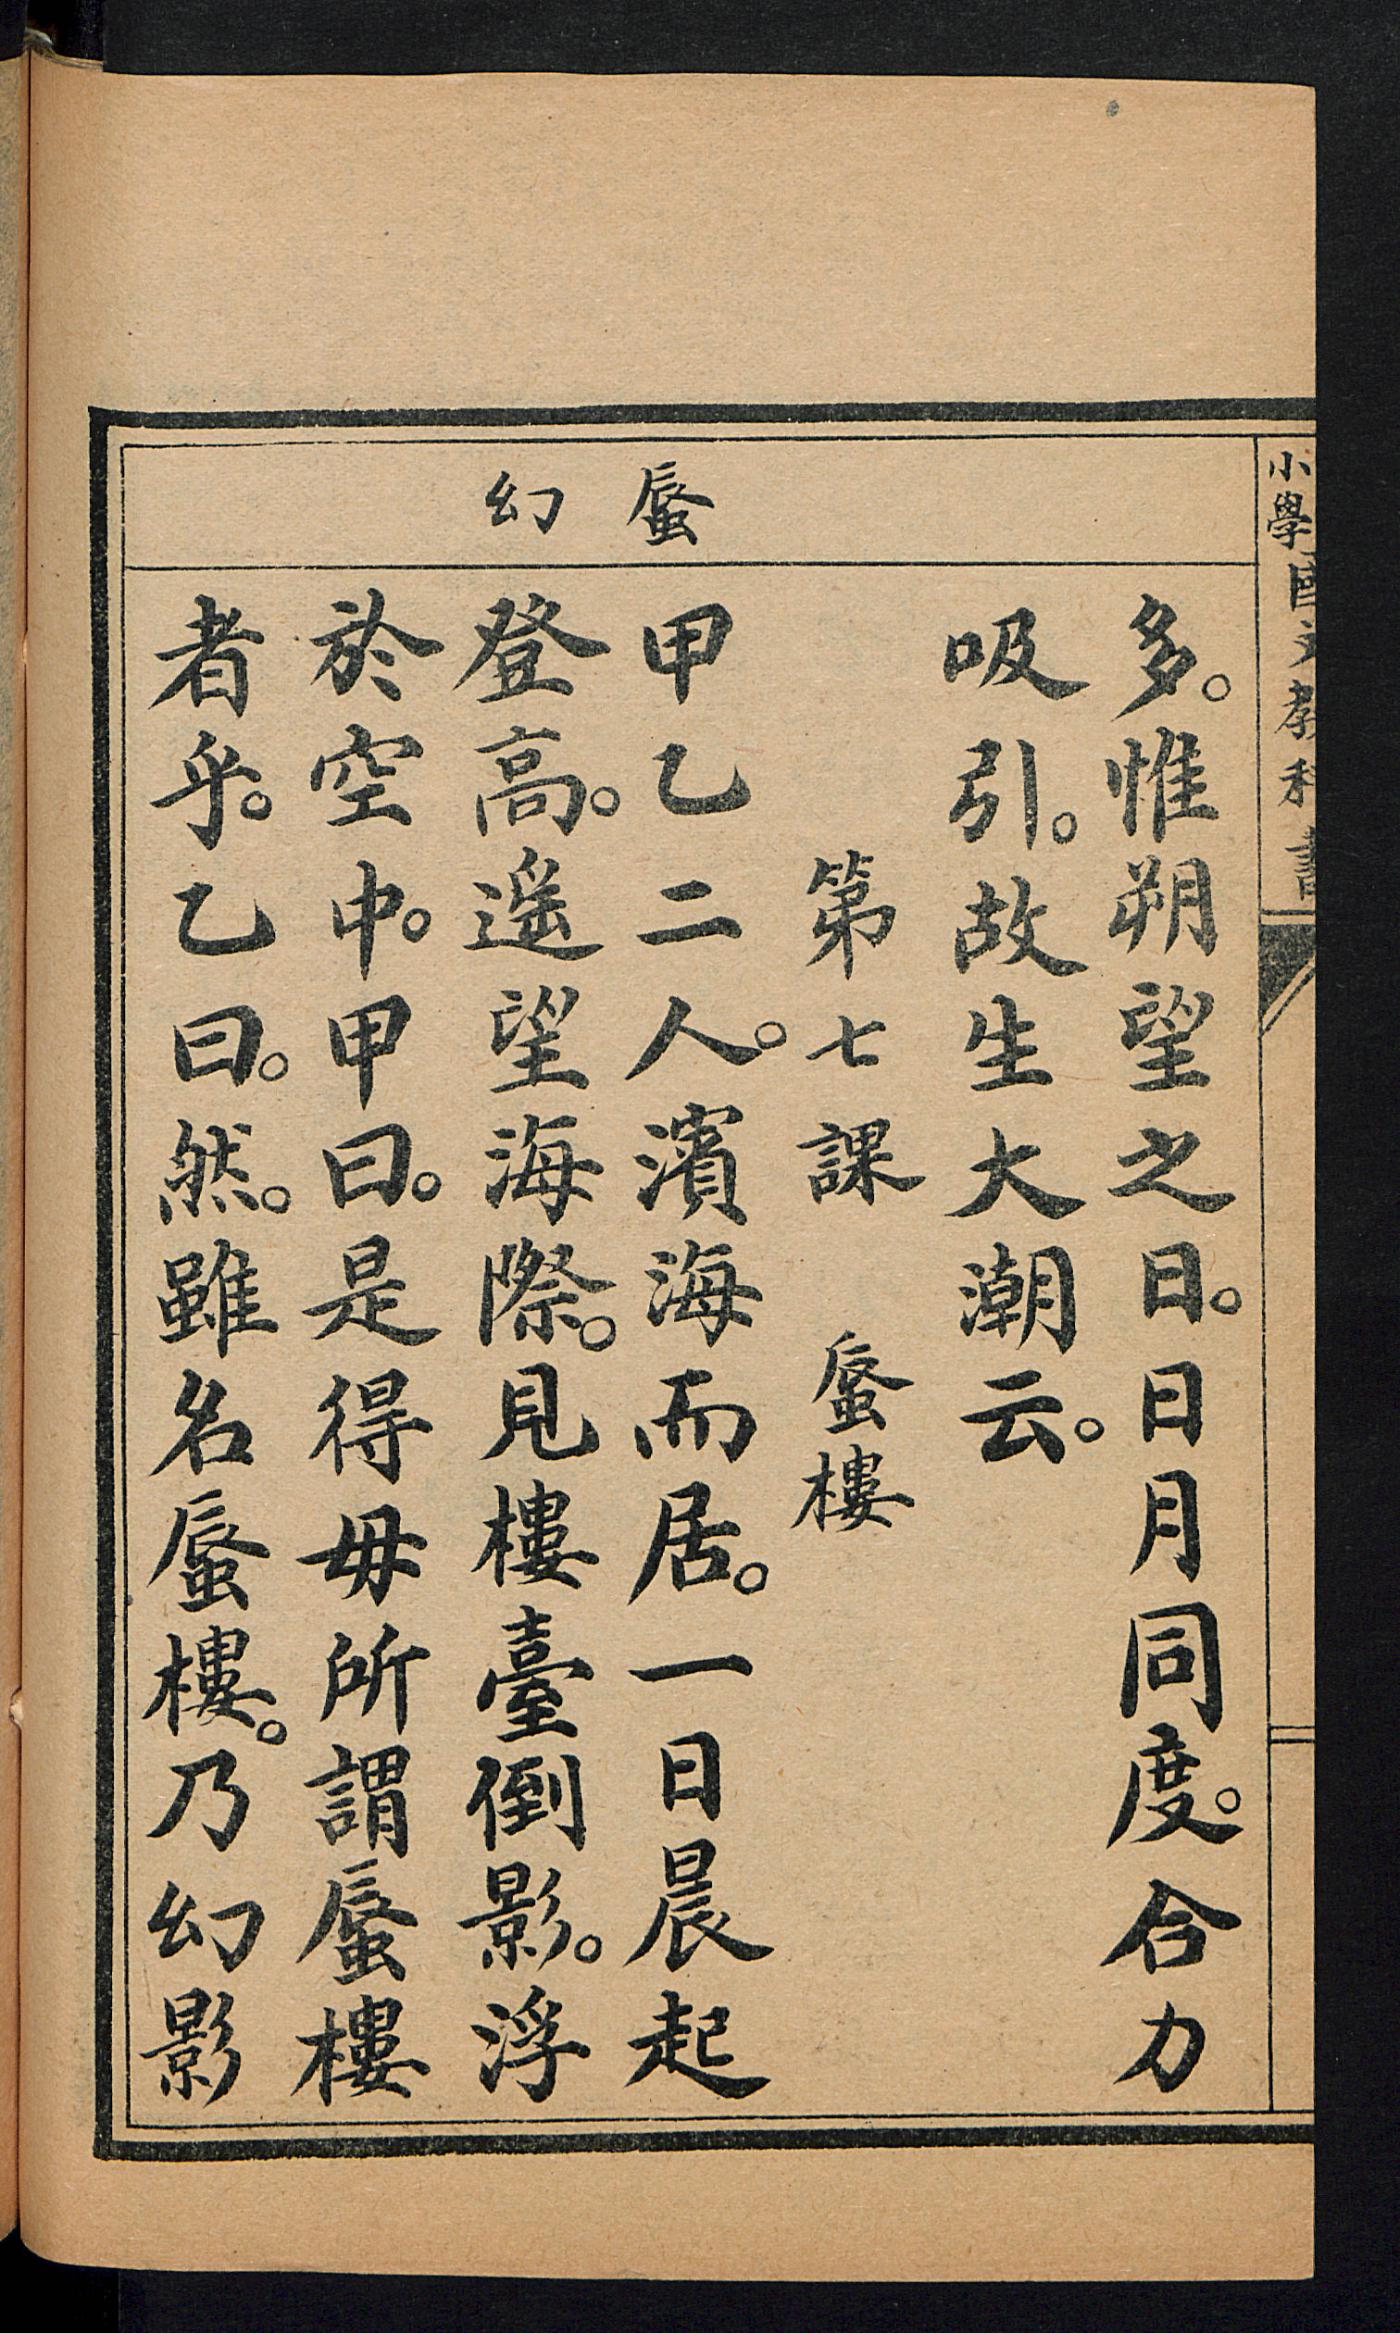 小學國文教科書
蜃
幻
多。惟朔望之日。日月同度。合力
吸引。故生大潮云。
第七課　蜃樓
甲乙二人。濱海而居。一日晨起
登高。遥望海際。見樓臺倒影。浮
於空中。甲曰。是得毋所謂蜃樓
者乎。乙曰。然。雖名蜃樓。乃幻影